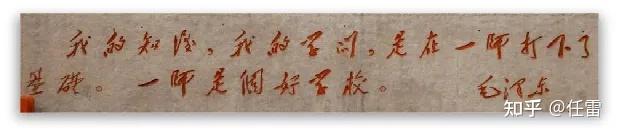 我的知识，我的学问，是在一师打下了
基礎。一师是個好学校。 毛泽东
知乎 @任雷